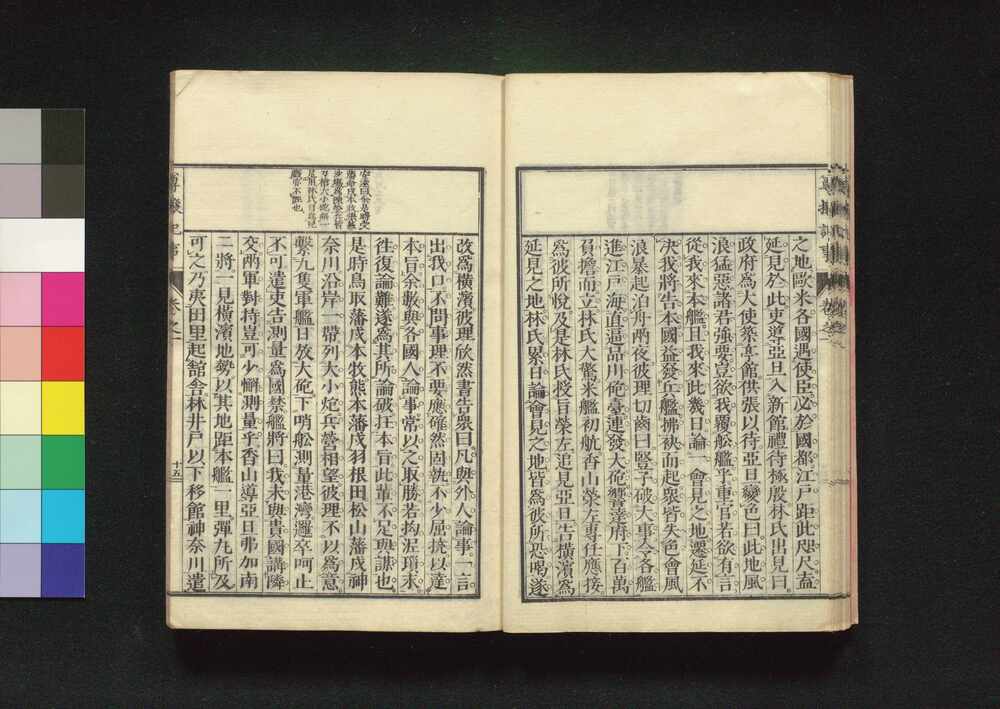 之地歐米各國遇使臣必於國都江戸距此咫尺盍
延見於此吏導亞旦入新館禮待極殷林氏出見曰
政府爲大使築亭館供張以待亞旦變色曰此地風
浪猛惡諸君強要豈欲我覆舩艦乎車官若欲有言
從我來本艦且我來此幾日論一會見之地遷延不
決我將告本國益發兵艦拂袂而起衆皆失色會風
浪暴起泊舟兩夜彼理切齒曰豎子破大事令各艦
進江戸海直逼品川砲臺連發大砲響達府下百萬
負擔而立林氏大驚來艦初航香山榮左專任應接
爲彼所悅及是林氏授旨榮左追見亞旦告横濱爲
延見之地林氏累日論會見之地皆爲彼所恐喝遂
改爲横濱彼理欣然書告衆曰凡與外人論事一言
出我口不問事理不要應確然固執不少屈撓以達
本旨余數與各國人論事常以之取勝若拘泥瑣末
徃復論難遂爲其所論破枉本旨此輩不足與謀也
是時鳥取藩戍本牧熊本藩戍羽根田松山藩戍神
奈川沿岸一帶列大小炮兵營相望彼理不以爲意
繫九隻軍艦日放大砲下哨舩測量港灣邏卒呵止
不可遣吏告測量爲國禁艦將曰我未與貴國講隣
交兩軍對持豈可少懈測量乎香山導亞旦弗加南
二將一見横濱地勢以其地距本艦一里彈丸所及
可之乃夷田里起舘舎林井戸以下移館神奈川遣
卷之一
十五